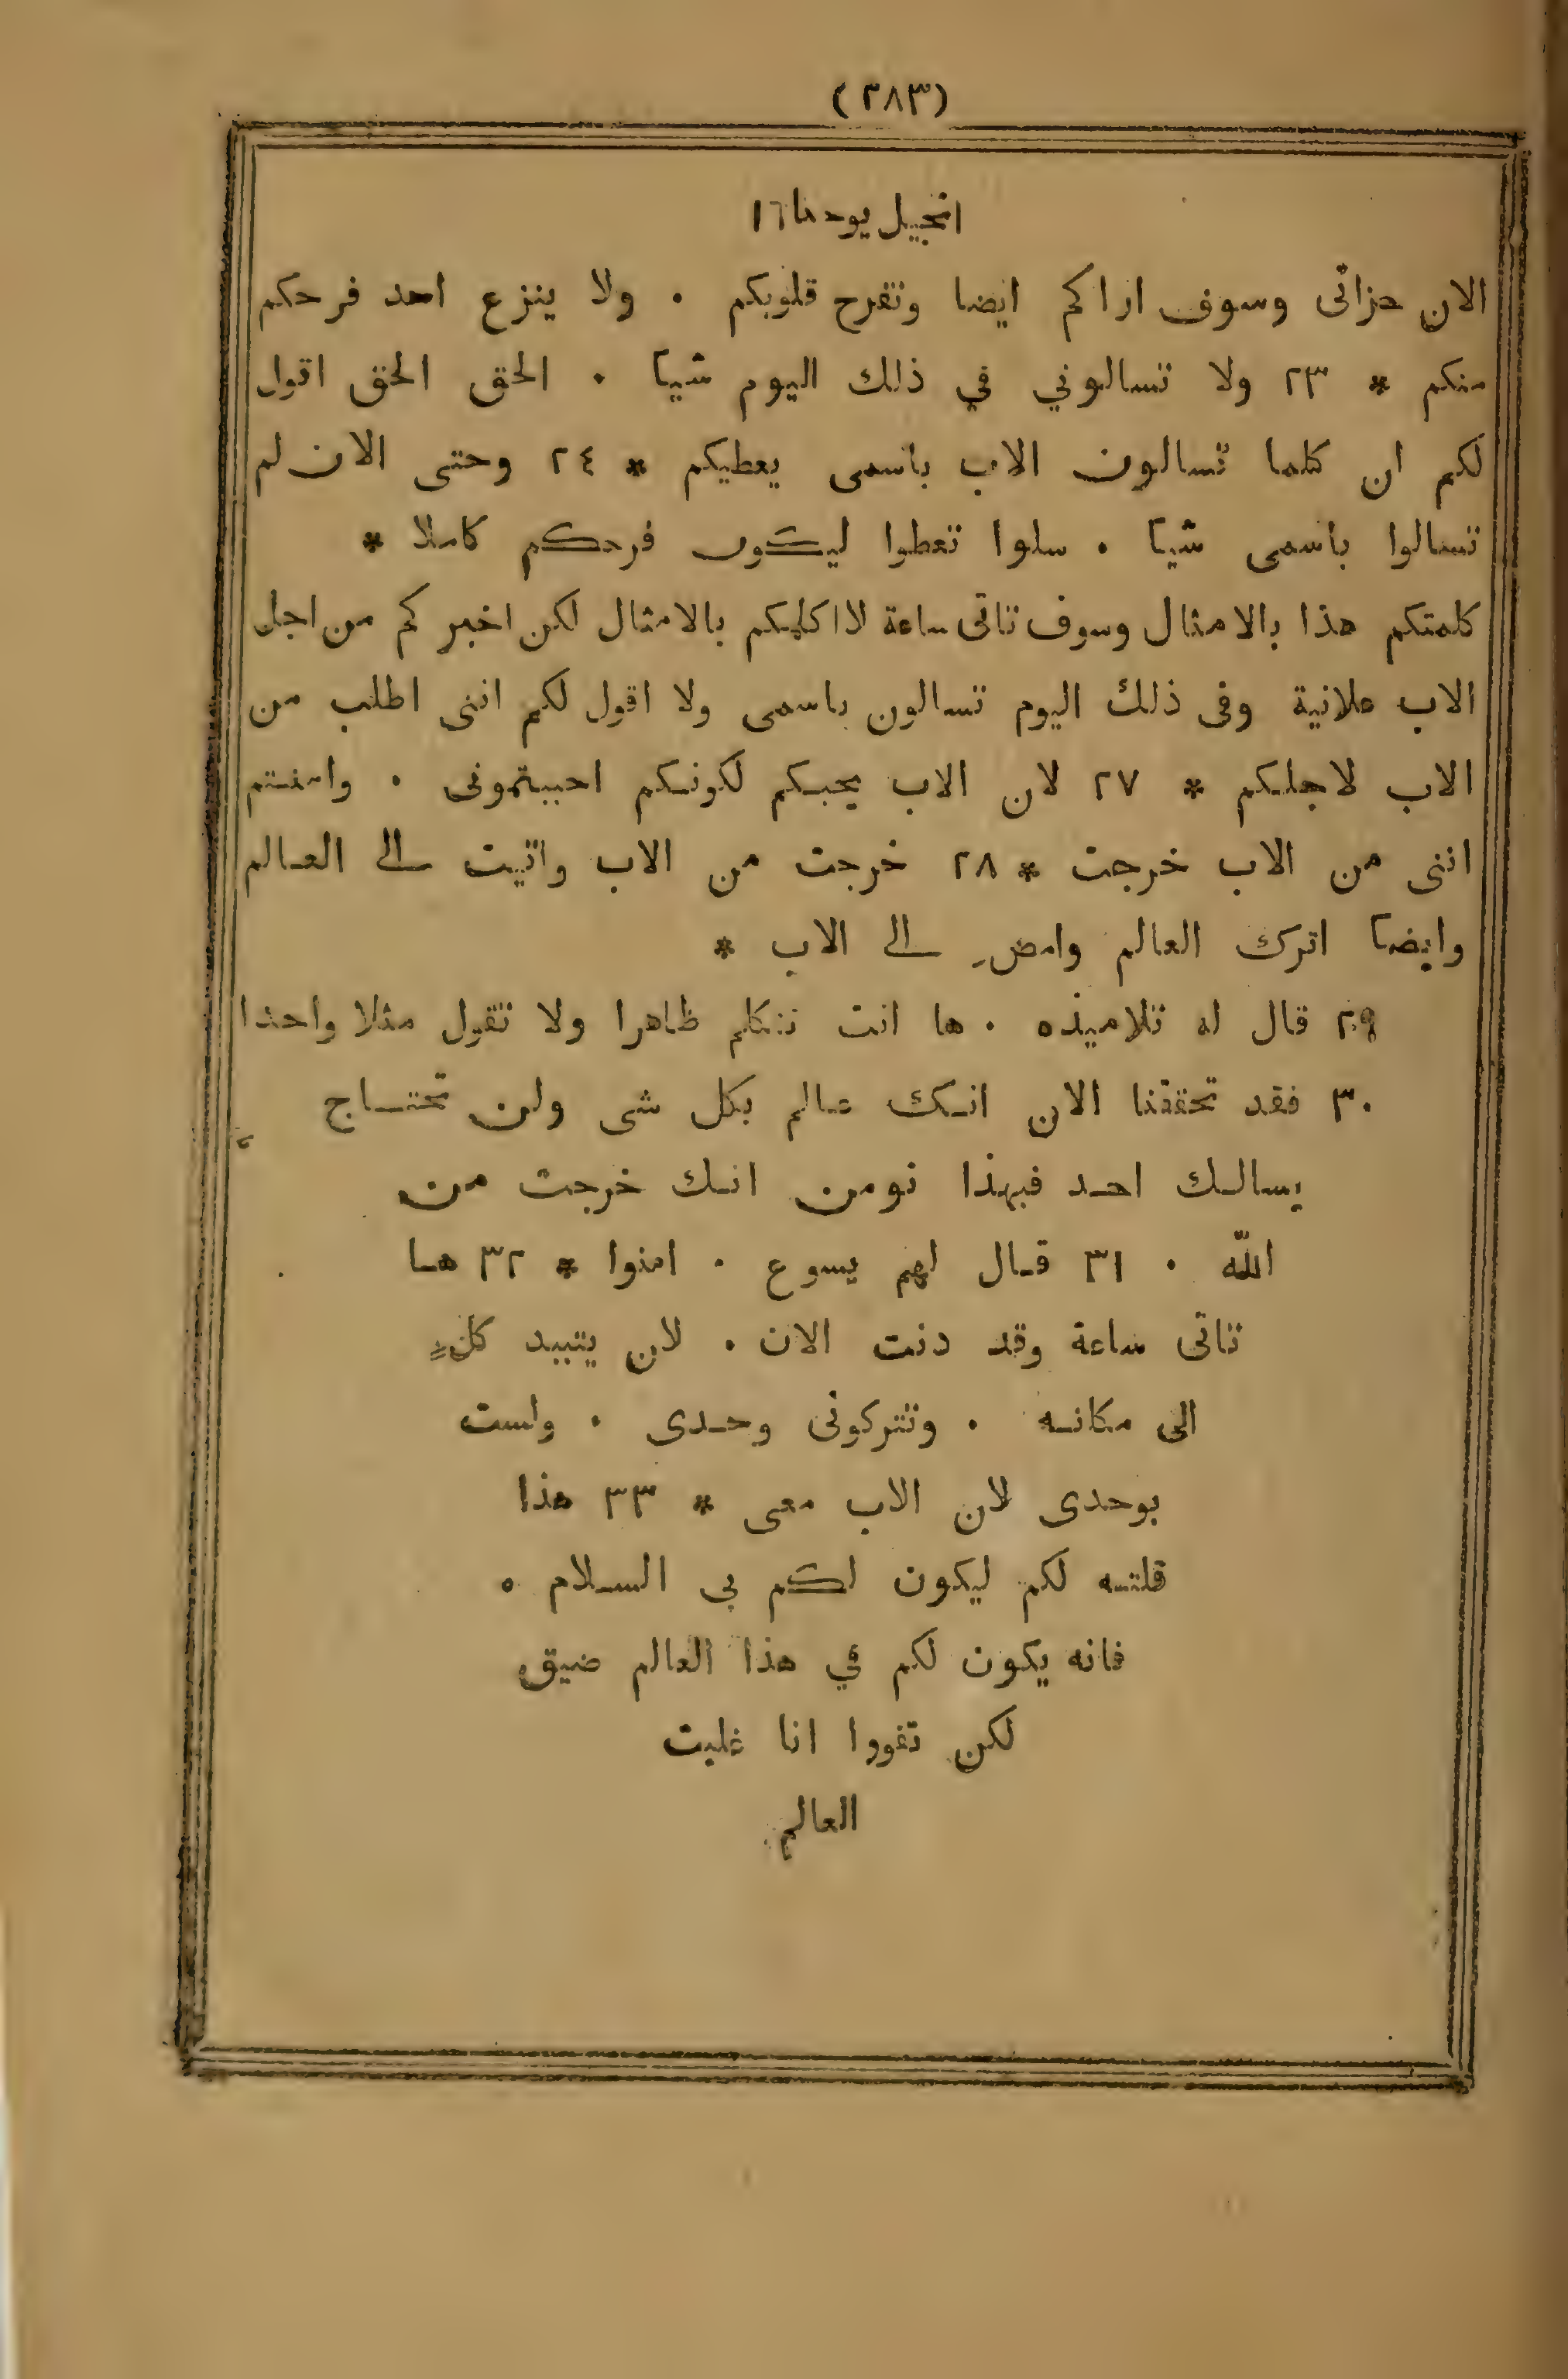 (٢٨٣)
انجيل يوحنا ١٦
الان حزانى وسوف اراكم ايضا وتفرح قلوبكم . ولا ينزع احد فرحكم
منكم * ٢٣ ولا تسالوني في ذلك اليوم شيا . الحق الحق اقول
لكم ان كلما تسالون الاب باسمى يعطيكم * ٢٤ وحتى الان لم
تسالوا باسمى شيا . سلوا تعطوا ليكون فرحكم كاملا *
كلمتكم هذا بالامثال وسوف تاتى ساعة لا اكلمكم بالامثال لكن اخبركم من اجل
الاب علانية وفى ذلك اليوم تسالون باسمى ولا اقول لكم اننى اطلب من
الاب لاجلكم * ٢٧ لان الاب يحبكم لكونكم احببتمونى . وامنتم
اننى من الاب خرجت * ٢٨ خرجت من الاب واتيت الى العالم
وايضا اترك العالم وامض الى الاب *
٢٩ قال له تلاميذه . ها انت تتكلم ظاهرا ولا تقول مثلا واحدا
٣٠ فقد تحققنا الان انك عالم بكل شى ولن تحتاج
يسالك احد فبهذا نومن انك خرجت من
الله . ٣١ قال لهم يسوع . امنوا * ٣٢ ها
تاتى ساعة وقد دنت الان . لان يتبدد كل
الى مكانه . وتتركونى وحدى . ولست
بوحدى لان الاب معى * ٣٣ هذا
قلته لكم ليكون لكم بى السلام .
فانه يكون لكم في هذا العالم ضيق
لكن تقووا انا غلبت
العالم